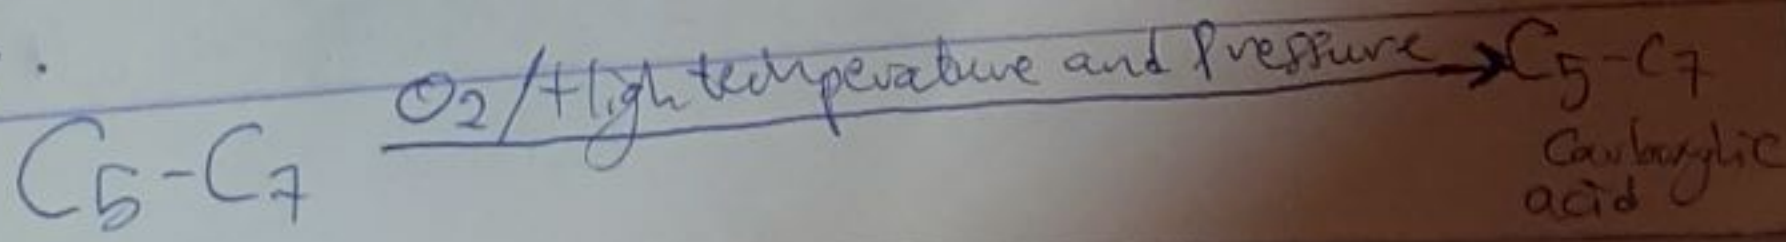 C5-C7 O2/High temperature and Pressure → C5-C7
Carboxylic
acid